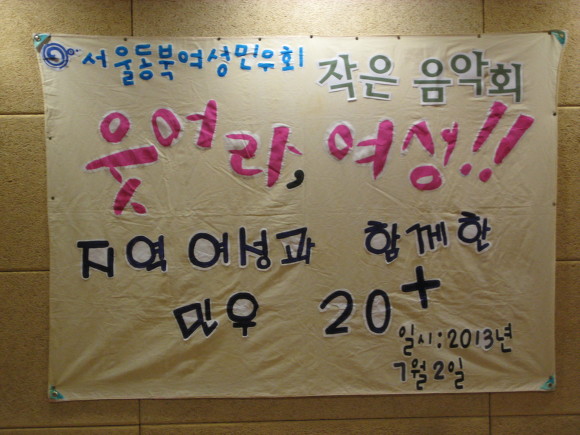 서울동북여성민우회
작은 음악회
웃어라, 여성!!
지역 여성과 함께한
민우 20+
일시: 2013년
7월 2일